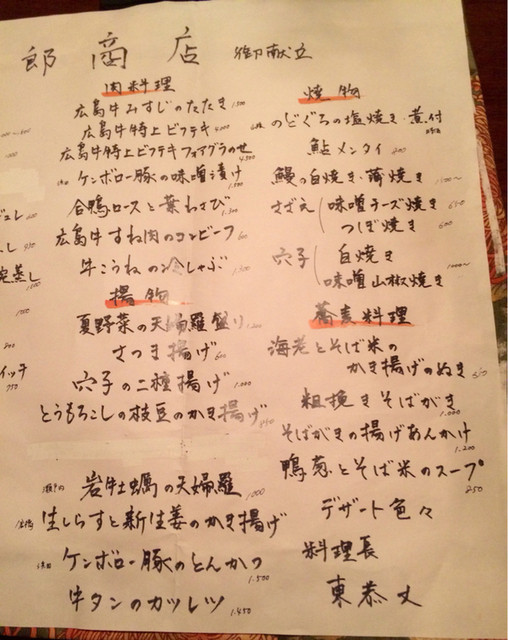 郎商店 御献立
肉料理
広島牛みすじのたたき 1.500
広島牛特上ビフテキ 4.000
広島牛特上ビフテキフォアグラのせ 4.500
ケンボロー豚の味噌漬け 1.500
合鴨ロースと葉わさび 1.200
広島牛すね肉のコンビーフ 600
牛こうねの冷しゃぶ 1.500
揚物
夏野菜の天婦羅盛り 1.200
さつま揚げ 600
穴子の二種揚げ 1.000
とうもろこしの枝豆のかき揚げ 850
瀬戸の 岩牡蠣の天婦羅 1.000
生しらすと新生姜のかき揚げ
ケンボロー豚のとんかつ 1.500
牛タンのカツレツ 1.450
焼物
のどぐろの塩焼き・煮付 時価
鮎メンタイ 700
鰻の白焼き・蒲焼き
さざえ 味噌チーズ焼き 650
つぼ焼き 600
穴子 白焼き
味噌山椒焼き 1000〜
蕎麦料理
海老とそば米の
かき揚げのぬき 850
粗挽きそばがき 1.000
そばがきの揚げあんかけ 1.200
鴨葱とそば米のスープ 850
デザート色々
料理長
東恭丈
ュレ 600
し
蒸し
イッチ 750